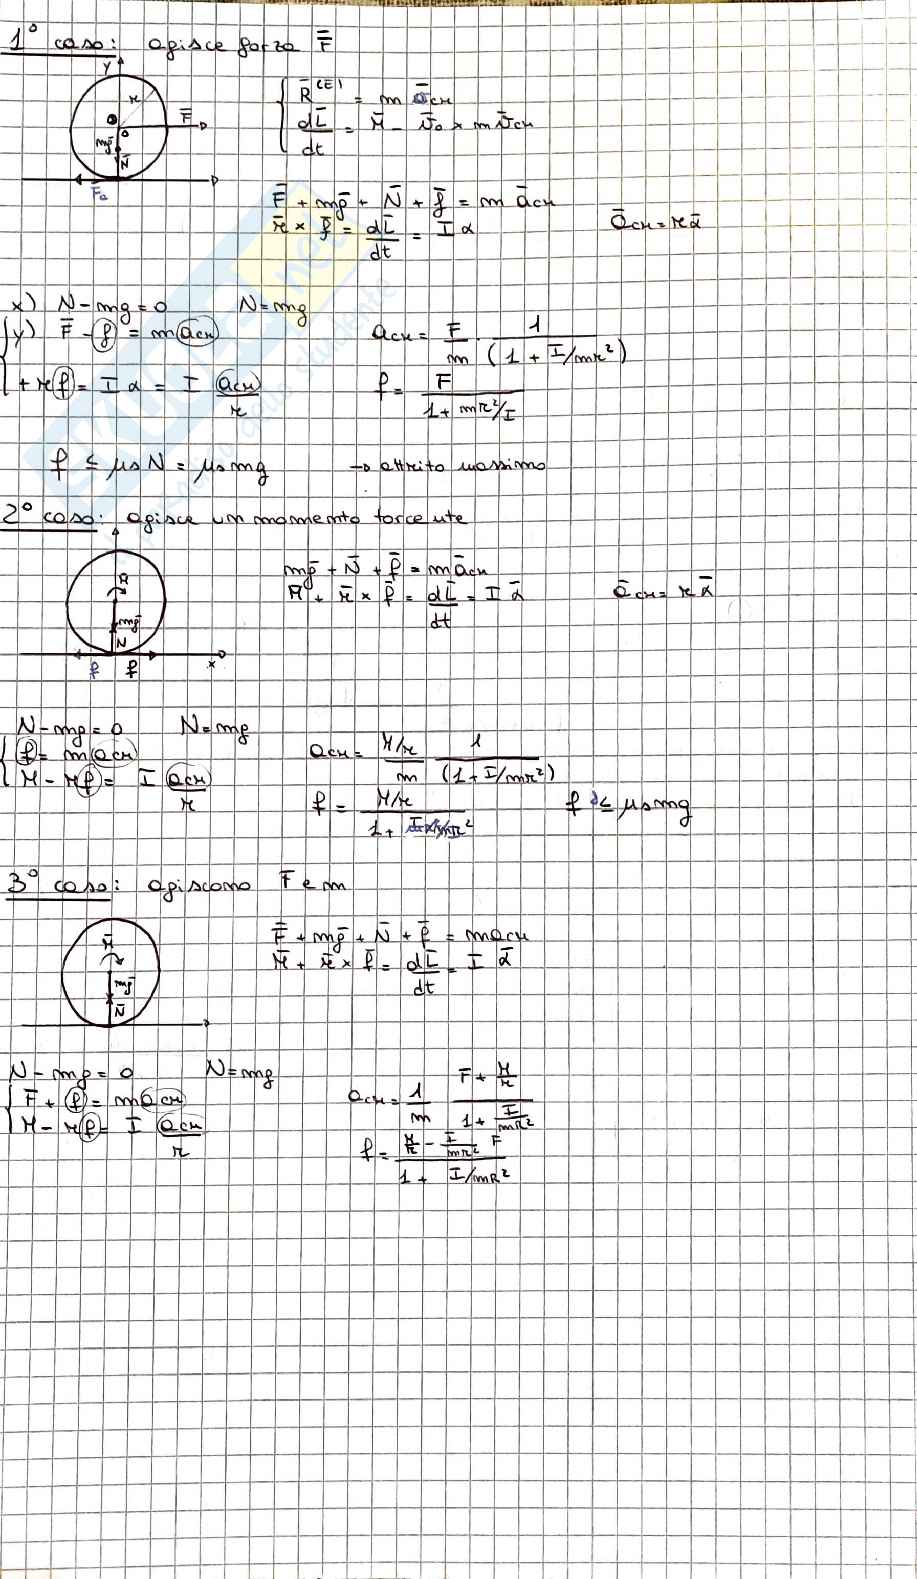 1° caso: agisce forza F̄
y
r
F̄
o
mḡ
N̄
Fa
R̄^(E) = m ācm
dL̄/dt = M̄ - v̄o × m v̄cm
F̄ + mḡ + N̄ + f̄ = m ācm
r̄ × f̄ = dL̄/dt = I α
ācm = r ᾱ
x) N - mg = 0 N = mg
y) F̄ - f = m acm
acm = F/m · 1/(1 + I/mr²)
+ r f = I α = I acm/r
f = F/(1 + mr²/I)
f ≤ μs N = μs mg → attrito massimo
2° caso: agisce un momento torcente
M̄
mḡ
N
f
f
x
mḡ + N̄ + f̄ = m ācm
M̄ + r̄ × f̄ = dL̄/dt = I ᾱ
ācm = r ᾱ
N - mg = 0 N = mg
f = m acm
M - r f = I acm/r
acm = M/r/m 1/(1 + I/mr²)
f = M/r/(1 + I/mr²)
f ≤ μs mg
3° caso: agiscono F e m
M̄
mḡ
N̄
F̄ + mḡ + N̄ + f̄ = m acm
M̄ + r̄ × f̄ = dL̄/dt = I ᾱ
N - mg = 0 N = mg
F̄ + f = m acm
M - r f = I acm/r
acm = 1/m (F + M/r)/(1 + I/mr²)
f = (M/r - I/mr² F)/(1 + I/mR²)
SKUOLA.net